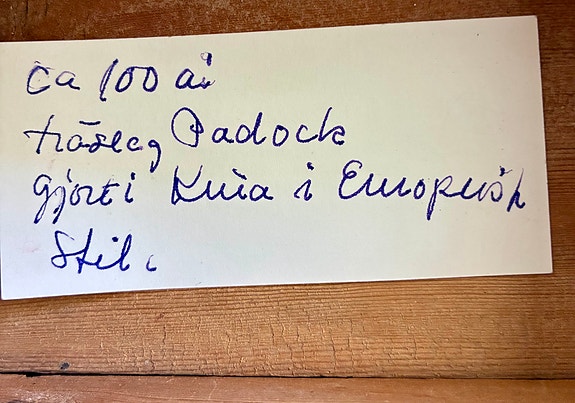 ca 100 år
träslag Padock
gjort i Kina i Europeisk
Stil.